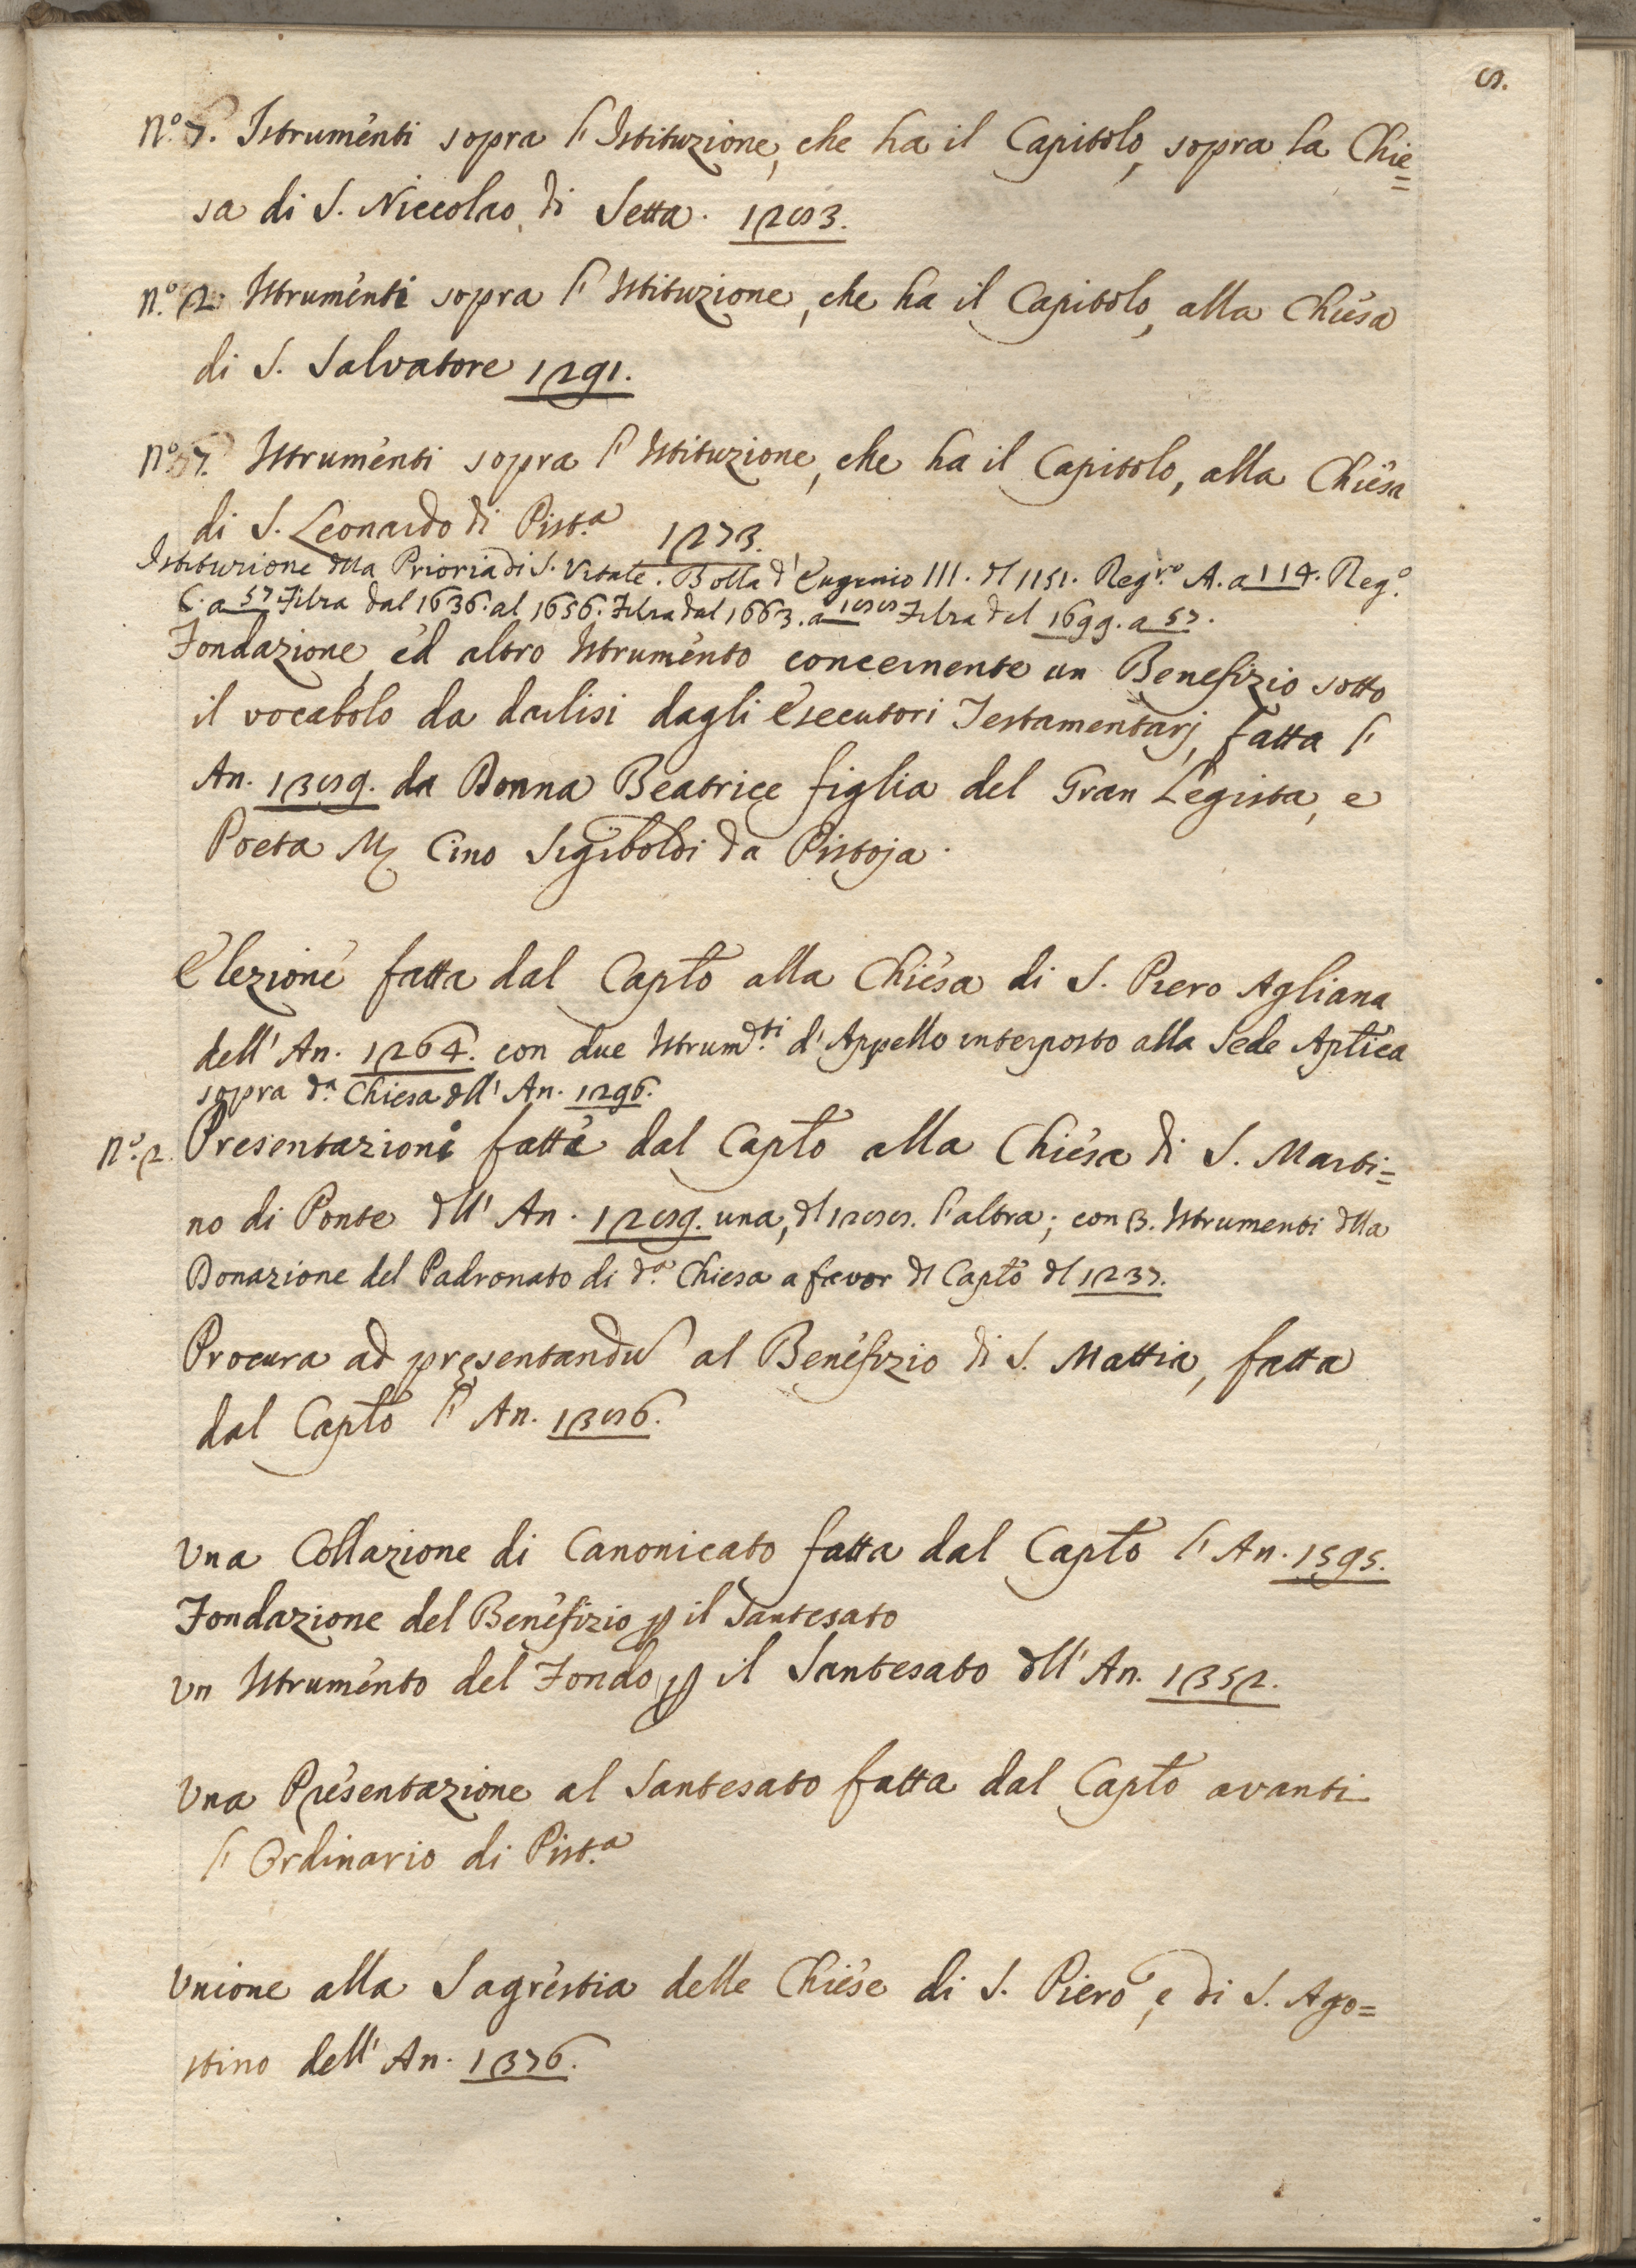 8.
N.° 7. Istrumenti sopra l'Istituzione, che ha il Capitolo, sopra la Chie=
sa di S. Niccolao di Setta. 1283.
N.° 2. Istrumenti sopra l'Istituzione, che ha il Capitolo, alla Chiesa
di S. Salvatore 1291.
N.° 7. Istrumenti sopra l'Istituzione, che ha il Capitolo, alla Chiesa
di S. Leonardo di Pist.a 1273.
Istituzione dlla Prioria di S. Vitale. Bolla d'Eugenio III. dl 1151. Reg.ro A. a 114. Reg.o
C. a 57 Filza dal 1636. al 1656. Filza dal 1663. a 188 Filza del 1699. a 57.
Fondazione, ed altro Istrumento concernente un Benefizio sotto
il vocabolo da darlisi dagli Esecutori Testamentarj, fatta l'
An. 1389. da Donna Beatrice figlia del Gran Legista, e
Poeta M. Cino Sigiboldi da Pistoja.
Elezione fatta dal Caplo alla Chiesa di S. Piero Agliana
dell'An. 1264. con due Istrum.ti d'Appello interposto alla Sede Aplica
sopra d.a Chiesa dll'An. 1296.
N.° 2. Presentazioni fatte dal Caplo alla Chiesa di S. Marti=
no di Ponte dll'An. 1289. una, dl 1288. l'altra; con 3. Istrumenti dlla
Donazione del Padronato di d.a Chiesa a favor dl Caplo dl 1237.
Procura ad presentandu al Benefizio di S. Mattia, fatta
dal Caplo l'An. 1386.
Una Collazione di Canonicato fatta dal Caplo l'An. 1595.
Fondazione del Benefizio p il Santesato
Un Istrumento del Fondo p il Santesato dll'An. 1352.
Una Presentazione al Santesato fatta dal Caplo avanti
l'Ordinario di Pist.a
Unione alla Sagrestia delle Chiese di S. Piero, e di S. Ago=
stino dell'An. 1376.